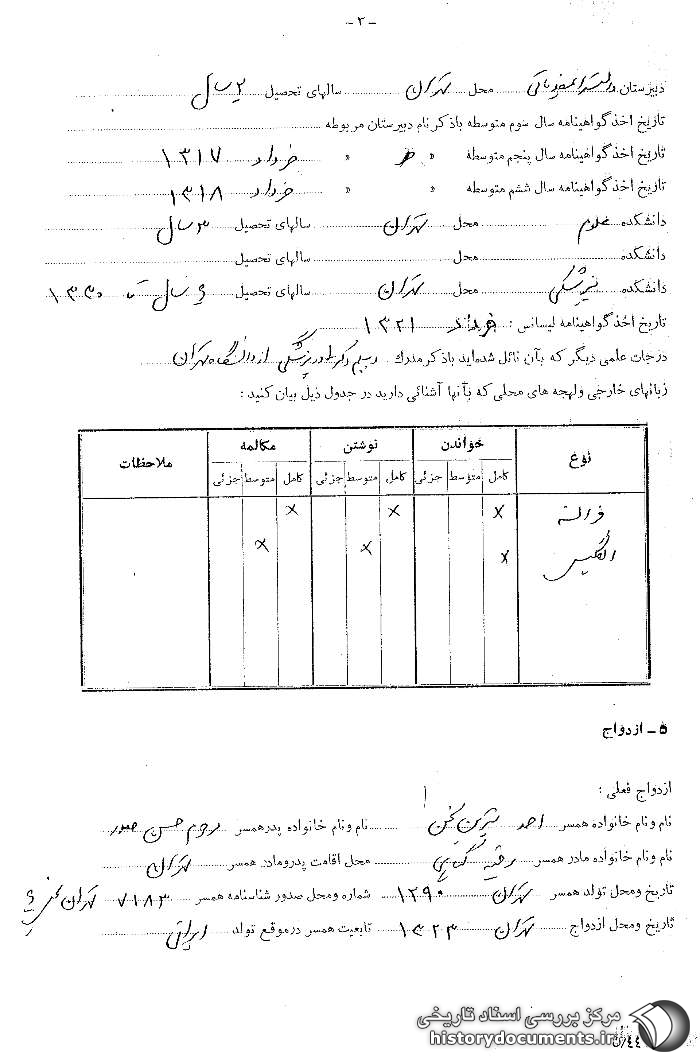 - ۲ -
دبیرستان ... محل تهران سالهای تحصیل ۲ سال
تاریخ اخذ گواهینامه سال سوم متوسطه باذکر نام دبیرستان مربوطه
تاریخ اخذ گواهینامه سال پنجم متوسطه « « خرداد ۱۳۱۷
تاریخ اخذ گواهینامه سال ششم متوسطه « « خرداد ۱۳۱۸
دانشکده علوم محل تهران سالهای تحصیل ۳ سال
دانشکده محل سالهای تحصیل
دانشکده پزشکی محل تهران سالهای تحصیل ۶ سال ۱۳۳۰
تاریخ اخذ گواهینامه لیسانس : خرداد ۱۳۲۱
درجات علمی دیگر که بآن نائل شده‌اید باذکر مدرك دیپلم دکترا در پزشکی از دانشگاه تهران
زبانهای خارجی ولهجه های محلی که بآنها آشنائی دارید در جدول ذیل بیان کنید :
نوع خواندن نوشتن مکالمه ملاحظات
کامل متوسط جزئی کامل متوسط جزئی کامل متوسط جزئی
فرانسه x x x
انگلیسی x x x
۵ ـ ازدواج
ازدواج فعلی :
نام ونام خانواده همسر احمد نام ونام خانواده پدرهمسر مرحوم حسن صدر
نام ونام خانواده مادر همسر رقیه محل اقامت پدرومادر همسر تهران
تاریخ ومحل تولد همسر تهران ۱۲۹۰ شماره ومحل صدور شناسنامه همسر ۷۱۸۳ تهران بخش ۶
تاریخ ومحل ازدواج تهران ۱۳۲۳ تابعیت همسر درموقع تولد ایرانی
مرکز بررسی اسناد تاریخی
historydocuments.ir